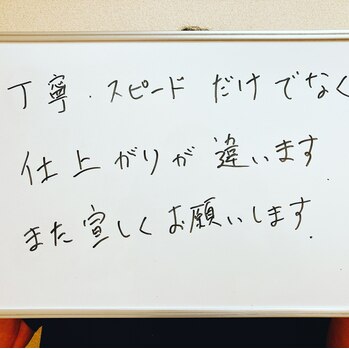 丁寧・スピードだけでなく
仕上がりが違います.
また宜しくお願いします.